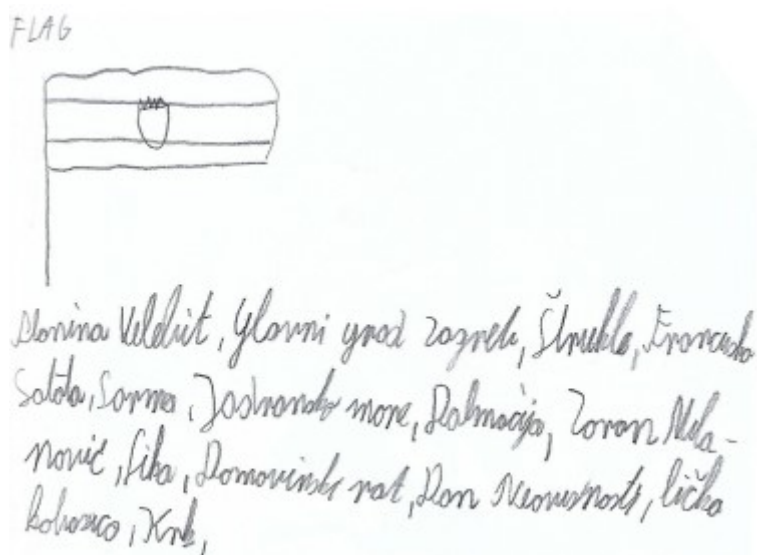 FLAG
Planina Velebit, glavni grad Zagreb, Štrukle, Francuska
Salata, Sarma, Jadransko more, Dalmacija, Zoran Mila-
nović, Lika, Domovinski rat, Dan Neovisnosti, lička
Krk,